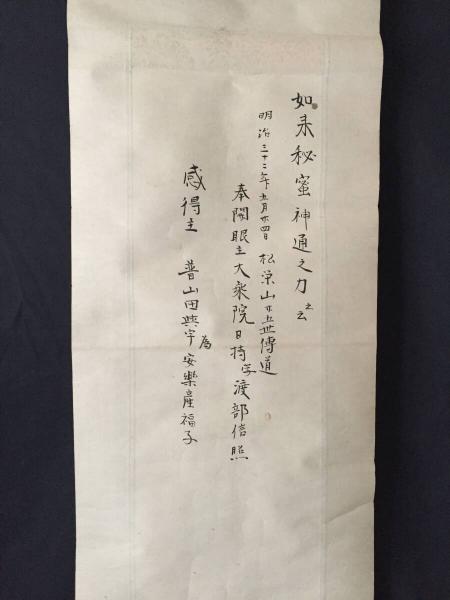 如来秘蜜神通之力 之云
明治三十二年五月廿四日 松栄山廿五世傳道
奉開眼主大乘院日持 字 渡部信照
感得主 普山田興宇 為 安樂産福子